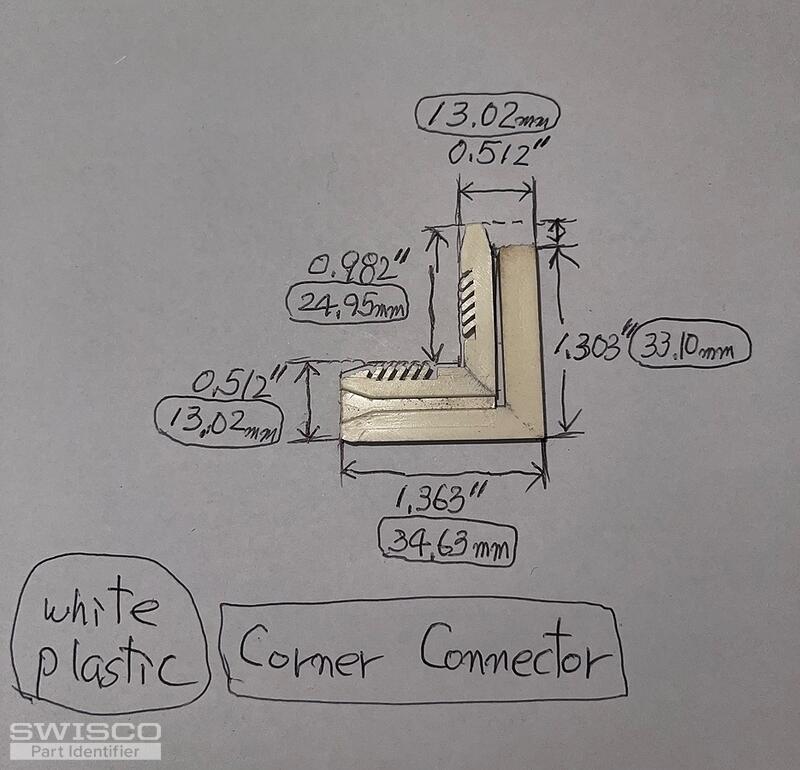 13.02mm
0.512"
0.982"
24.95mm
1.303" 33.10mm
0.512"
13.02mm
1.363"
34.63mm
white
plastic
Corner Connector
SWISCO
Part Identifier